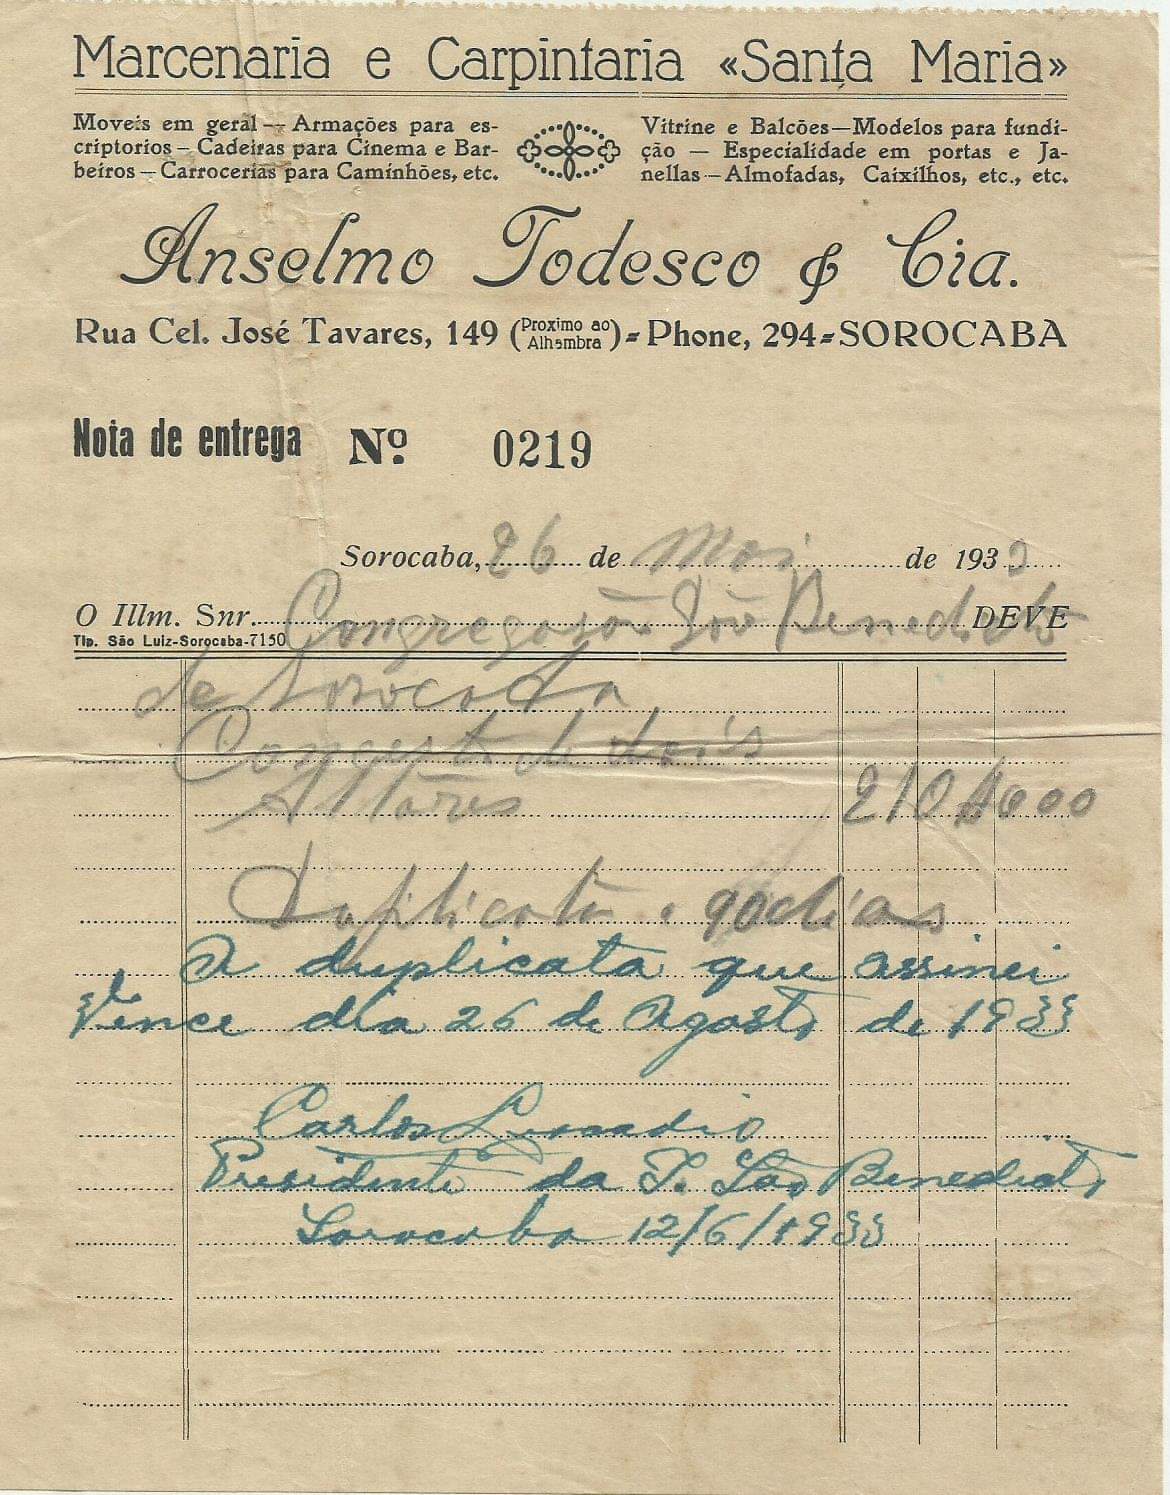 Marcenaria e Carpintaria «Santa Maria»
Moveis em geral — Armações para es-
criptorios — Cadeiras para Cinema e Bar-
beiros — Carrocerias para Caminhões, etc.
Vitrine e Balcões — Modelos para fundi-
ção — Especialidade em portas e Ja-
nellas — Almofadas, Caixilhos, etc., etc.
Anselmo Todesco & Cia.
Rua Cel. José Tavares, 149 (Proximo ao Alhambra) = Phone, 294 = SOROCABA
Nota de entrega Nº 0219
Sorocaba, 26 de Mai de 1933
O Illm. Snr. Congregação São Benedicto DEVE
Tip. São Luiz-Sorocaba-7150
de Sorocaba
de dois
Altares 210$000
Duplicata 90 dias
A duplicata que assinei
Vence dia 26 de Agosto de 1933
Carlos
Presidente da I. São Benedicto
Sorocaba 12/6/1933